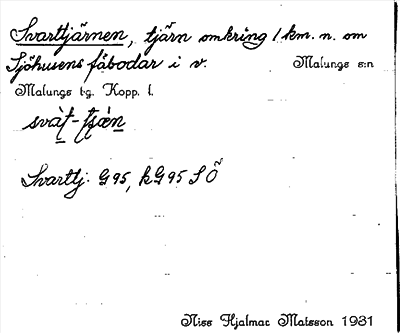 Svarttjärnen, tjärn omkring 1 km. n. om
Sjöhusens fäbodar i v. Malungs s:n
Malungs tg. Kopp. l.
svàt-tjæ̀n
Svarttj. G95, kG95 S Ö
Niss Hjalmar Matsson 1931